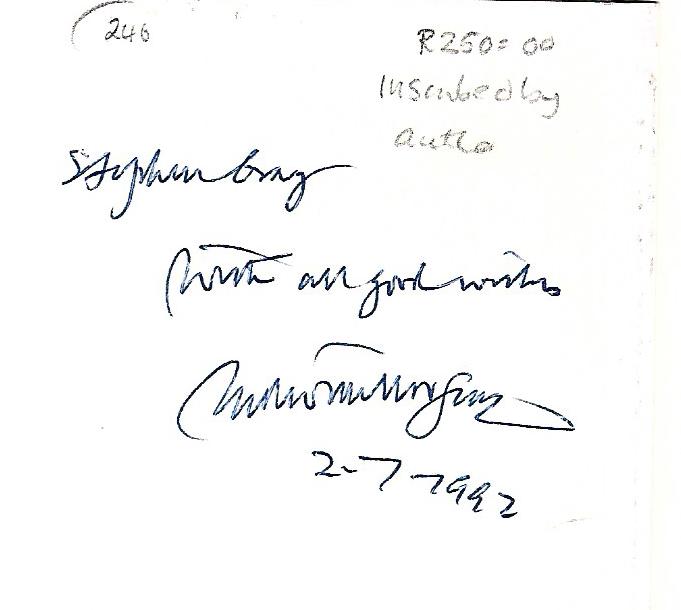 246
R250=00
Inscribed by
Autho
Stephen Gray
With all good wishes
2-7-1992